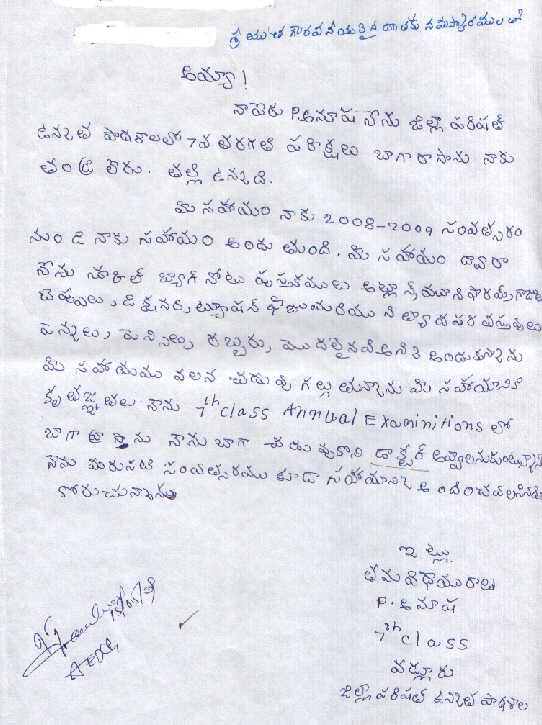 ప్రియుత గౌరవనీయులైన దాతకు నమస్కారములతో
అయ్యా!
నా పేరు P. అనూష నేను జిల్లా పరిషత్
ఉన్నత పాఠశాలలో 7వ తరగతి పరిక్షలు బాగా రాసాను నాకు
తండ్రి లేరు. తల్లి ఉన్నది.
మీ సహాయం నాకు 2008-2009 సంవత్సరం
నుండి నాకు సహాయం అందుతుంది. మీ సహాయం ద్వారా
నేను స్కూల్ బ్యాగ్ నోటు పుస్తకములు
చెప్పులు, డిక్షనరి, ట్యూషన్ ఫీజు మరియు నిత్యావసర వస్తువులు
పెన్నులు, పెన్సిల్సు రబ్బరు, మొదలైనవి అన్ని అందుకున్నాను
మీ సహాయము వలన చదువు గల్గుతున్నాను మీ సహాయానికి
కృతజ్ఞతలు నేను 7th class Annual Examinitions లో
బాగా రాస్తాను నేను బాగా చదువుకొని డాక్టర్ అవ్వాలనుకుంటున్నాను
నేను మరుసటి సంవత్సరము కూడా సహాయాన్ని అందించవలసినదిగా
కోరుచున్నాను
ఇట్లు
తమ విధేయురాలు
P. అనూష
7th class
వల్లూరు
జిల్లా పరిషత్ ఉన్నత పాఠశాల